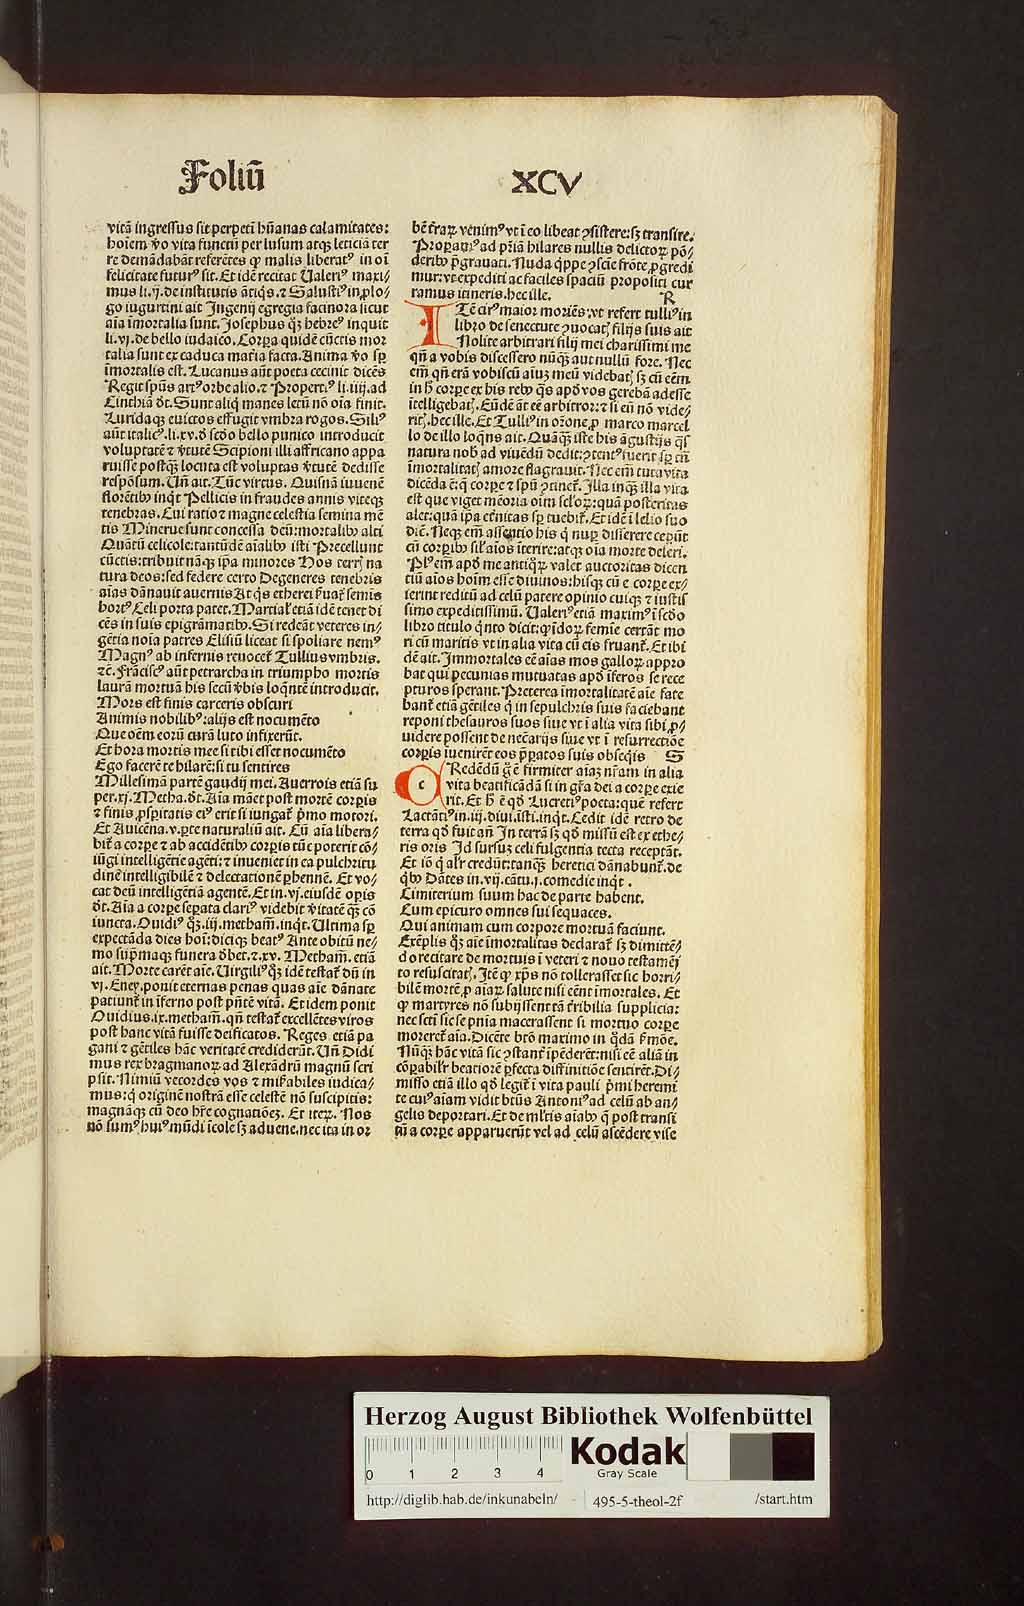 Foliū XCV
vitā ingressus sit perpeti hūanas calamitates:
hoīem v̄o vita functū per lusum atqꝫ leticiā ter
re demādabāt referētes ꝙ malis liberatꝰ in oī
felicitate futurꝰ sit. Et idē recitat Ualeriꝰ maxi/
mus li.ij.de institutis ātiq̄s.⁊ Salustiꝰ in ꝓlo/
go iugurtini ait Ingenij egregia facinora sicut
aīa īmortalia sunt. Josephus q̄ꝫ hebreꝰ inquit
li.vi.de bello iudaico. Corꝑa quidē cūctis mor
talia sunt ex caduca mat̄ia facta. Anima v̄o sꝑ
īmortalis est. Lucanus aūt poeta cecinit dicēs
Regit spūs artꝰ orbe alio.⁊ Propertꝰ li.iiij.ad
Cinthiā d̄t. Sunt aliq̄ manes letū nō oīa finit.
Luridaqꝫ euictos effugit vmbra rogos. Siliꝰ
aūt italicꝰ.li.xv.d̄ scd̄o bello punico introducit
voluptatē ⁊ v̄tutē Scipioni illi affricano appa
ruisse postq̄ꝫ locuta est voluptas v̄tutē dedisse
respōsum. Uñ ait. Tūc virtus. Quisnā iuuenē
florētibꝰ inq̄t Pellicis in fraudes annis viteqꝫ
tenebras. Cui ratio ⁊ magne celestia semina mē
tis Minerue sunt concessa deū: mortalibꝰ alti
Quātū celicole: tantūdē aīalibꝰ isti Precellunt
cūctis: tribuit nāqꝫ ip̄a minores Hos terrꝭ na
tura deos: sed federe certo Degeneres tenebris
aīas dānauit auernis At q̄s etherei s̄uat᷑ semīs
hortꝰ Celi porta patet. Martial᷑ etiā idē tenet di
cēs in suis epigrāmatibꝰ. Si redeāt veteres in/
gētia noīa patres Elisiū liceat si spoliare nemꝰ
Magnꝰ ab infernis reuocet᷑ Tullius vmbris.
⁊c̄. Frāciscꝰ aūt petrarcha in triumpho mortis
laurā mortuā his secū v̄bis loq̄ntē introducit.
Mors est finis carceris obscuri
Animis nobilibꝰ: alijs est nocumēto
Que oēm eorū curā luto infixerūt.
Et hora mortis mee si tibi esset nocumēto
Ego facerē te hilarē: si tu sentires
Millesimā partē gaudij mei. Auerrois etiā su
per.xj. Metha.d̄t. Aīa māet post mortē corꝑis
⁊ finis ꝓsꝑitatis eiꝰ erit si iungat᷑ p̄mo motori.
Et Auicēna.v.ꝑte naturaliū ait. Cū aīa libera/
bit᷑ a corꝑe ⁊ ab accidētibꝰ corꝑis tūc poterit cō/
iūgi intelligētie agēti: ⁊ inueniet in ea pulchritu
dinē intelligibilē ⁊ delectationē ꝑhennē. Et vo/
cat deū intelligētiā agentē. Et in.vj.eiusdē oꝑis
d̄t. Aīa a corꝑe seꝑata clariꝰ videbit v̄itatē q̄ꝫ cō
iuncta. Ouidiꝰ q̄ꝫ.iij.metham̄.inq̄t. Ultima sꝑ
expectāda dies hoī: diciqꝫ beatꝰ Ante obitū ne/
mo sup̄maqꝫ funera d̄bet.⁊.xv. Metham̄. etiā
ait. Morte carēt aīe. Uirgiliꝰ q̄ꝫ idē testat᷑ dū in
vj. Eney. ponit eternas penas quas aīe dānate
patiunt᷑ in īferno post p̄ntē vitā. Et idem ponit
Ouidius.ix.metham̄.qn̄ testat᷑ excellētes viros
post hanc vitā fuisse deificatos. Reges etiā pa
gani ⁊ gētiles hāc veritatē crediderūt. Uñ Didi
mus rex bragmanoꝝ ad Alexādrū magnū scri
psit. Nimiū vecordes vos ⁊ mirabiles iudica/
mus: q̄ originē nostrā esse celestē nō suscipitis:
magnāqꝫ cū deo hr̄e cognationēꝫ. Et iteꝝ. Nos
nō sumꝰ huiꝰ mūdi īcole sꝫ aduene. nec ita in or
bē t̄raꝝ venimꝰ vt ī eo libeat ꝯsistere: sꝫ transire.
Proꝑamꝰ ad p̄riā hilares nullis delictoꝝ pō/
deribꝰ p̄grauati. Nuda q̄ppe ꝯscīe frōte ꝓgredi
mur: vt expediti ac faciles spaciū propositi cur
ramus itineris. hec ille. R
ITē cirꝰ maior moriēs: vt refert tulliꝰ in
libro de senectute ꝯuocatꝭ filijs suis ait
Nolite arbitrari filij mei charissimi me
qn̄ a vobis discessero nūq̄ꝫ aut nullū fore. Nec
em̄ qn̄ erā vobiscū aīuꝫ meū videbatꝭ sꝫ cū eēm
in h̄ corꝑe ex his rebꝰ q̄s apd̄ vos gerebā adesse
ītelligebatꝭ. Eūdē āt eē arbitror: ⁊ si eū nō vide/
ritꝭ. hec ille. Et Tulliꝰ in or̄one ꝓ marco marcel
lo de illo loq̄ns ait. Quāq̄ꝫ iste his āgustijs q̄s
natura nob̄ ad viuēdū dedit: ꝯtentꝰ fuerit sꝑ tn̄
īmortalitatꝭ amore flagrauit. Nec em̄ tua vita
dicēda ē: q̄ corꝑe ⁊ spū ꝯtinet᷑. Illa inq̄ꝫ illa vita
est que viget mēoria oīm scl̄oꝝ: quā posteritas
alet: quā ip̄a et̄nitas sꝑ tuebit᷑. Et idē ī lelio suo
diē. Neqꝫ em̄ assentio his q̄ nuꝑ disserere ceꝑūt
cū corꝑibꝰ sil᷑ aīos īterire: atqꝫ oīa morte deleri.
Plꝰ em̄ apd̄ me antiq̄ꝝ valet auctoritas dicen
tiū aīos hoīm esse diuinos: hisqꝫ cū e corꝑe ex/
ierint reditū ad celū patere opinio cuiqꝫ ⁊ iustis
simo expeditissimū. Ualeriꝰ etiā maximꝰ ī scd̄o
libro titulo q̄nto dicit: ꝙ idoꝝ femīe certāt mo
ri cū maritis vt in alia vita cū eis fruant᷑. Et ibi
dē ait. Immortales eē aīas mos galloꝝ appro
bat qui pecunias mutuatas apd̄ īferos se rece
pturos sperant. Preterea īmortalitatē aīe fate
bant᷑ etiā gētiles q̄ in sepulchris suis faciebant
reponi thesauros suos siue vt ī alia vita sibi ꝓ/
uidere possent de nec̄arijs siue vt ī resurrectiōe
corꝑis īuenirēt eos p̄ꝑatos suis obseq̄is S
CRedēdū ḡ ē firmiter aīaꝫ nr̄am in alia
vita beatificādā si in gr̄a dei a corꝑe exie
rit. Et h̄ ē qd̄ Lucretiꝰ poeta: quē refert
Lactātiꝰ in.iij.diui.īsti.inq̄t. Cedit idē retro de
terra qd̄ fuit añ In terrā sꝫ qd̄ missū est ex ethe/
ris oris Id sursuꝫ celi fulgentia tecta receptāt.
Et iō q̄ al᷑r credūt: tanq̄ꝫ heretici dānabunt᷑. de
q̄bꝰ Dātes in.vij.cātu.j.comedie inq̄t.
Cimiterium suum hac de parte habent.
Cum epicuro omnes sui sequaces.
Qui animam cum corpore mortuā faciunt.
Exēplis q̄ꝫ aīe īmortalitas declarat᷑ sꝫ dimittē/
do recitare de mortuis ī veteri ⁊ nouo testamē/
to resuscitatꝭ. Itē ꝙ xp̄s nō tollerasset sic horri/
bilē mortē ꝓ aīaꝝ salute nisi eēnt īmortales. Et
ꝙ martyres nō subijssent tā t̄ribilia supplicia:
nec scti sic se pn̄ia macerassent si mortuo corꝑe
moreret᷑ aīa. Dicēte btō maximo in q̄dā s̄mōe.
Nūq̄ꝫ hāc vitā sic ꝯstant᷑ īpēderēt: nisi eē aliā in
cōꝑabil᷑r beatiorē ꝑfecta diffinitiōe sentirēt. Di/
misso etiā illo qd̄ legit᷑ ī vita pauli p̄mi heremi
te cuiꝰ aīam vidit btūs Antoniꝰ ad celū ab an/
gelis deportari. Et de ml̄tis aīabꝰ q̄ post transi
tū a corꝑe apparuerūt vel ad celū ascēdere vise
Herzog August Bibliothek Wolfenbüttel
0 1 2 3 4
Kodak
Gray Scale
http://diglib.hab.de/inkunabeln/ 495-5-theol-2f /start.htm